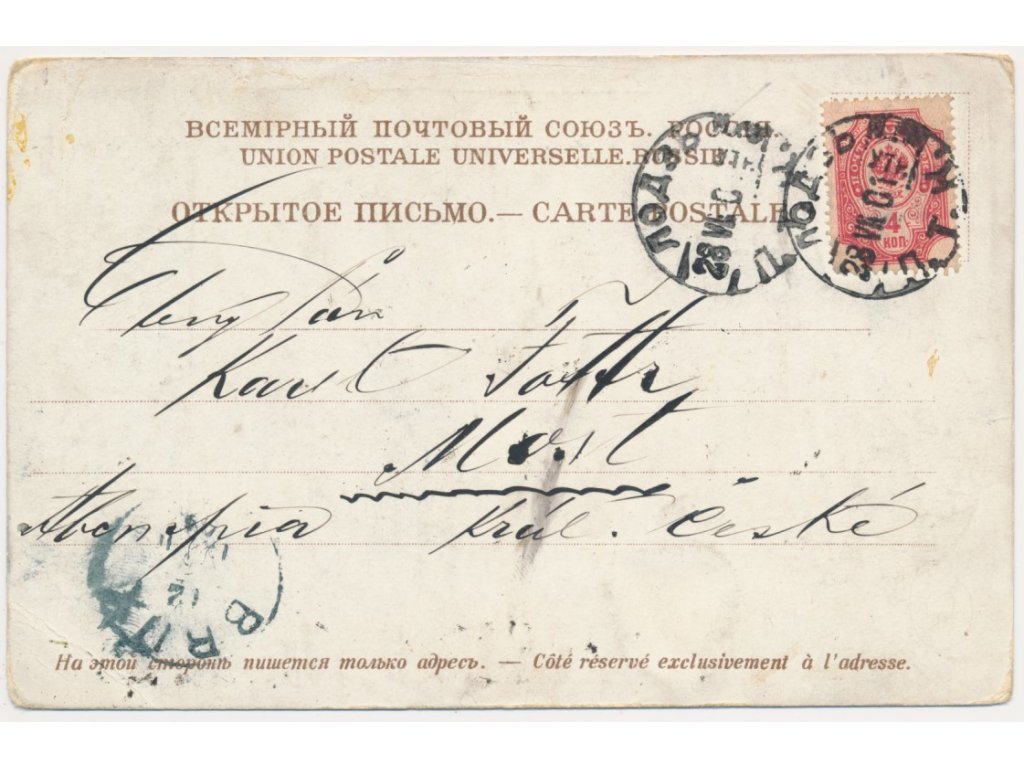 ВСЕМІРНЫЙ ПОЧТОВЫЙ СОЮЗЪ. РОССІЯ.
UNION POSTALE UNIVERSELLE. RUSSIE.
ОТКРЫТОЕ ПИСЬМО.— CARTE POSTALE
ЛОДЗЬ
28 VII 0
ЛОДЗЬ
28 VII 01
УТР
П. Т.
4
КОП.
Pán
Karel
Most
Австрія Král. české
BRÜX
12
На этой сторонѣ пишется только адресъ. — Côté réservé exclusivement à l'adresse.